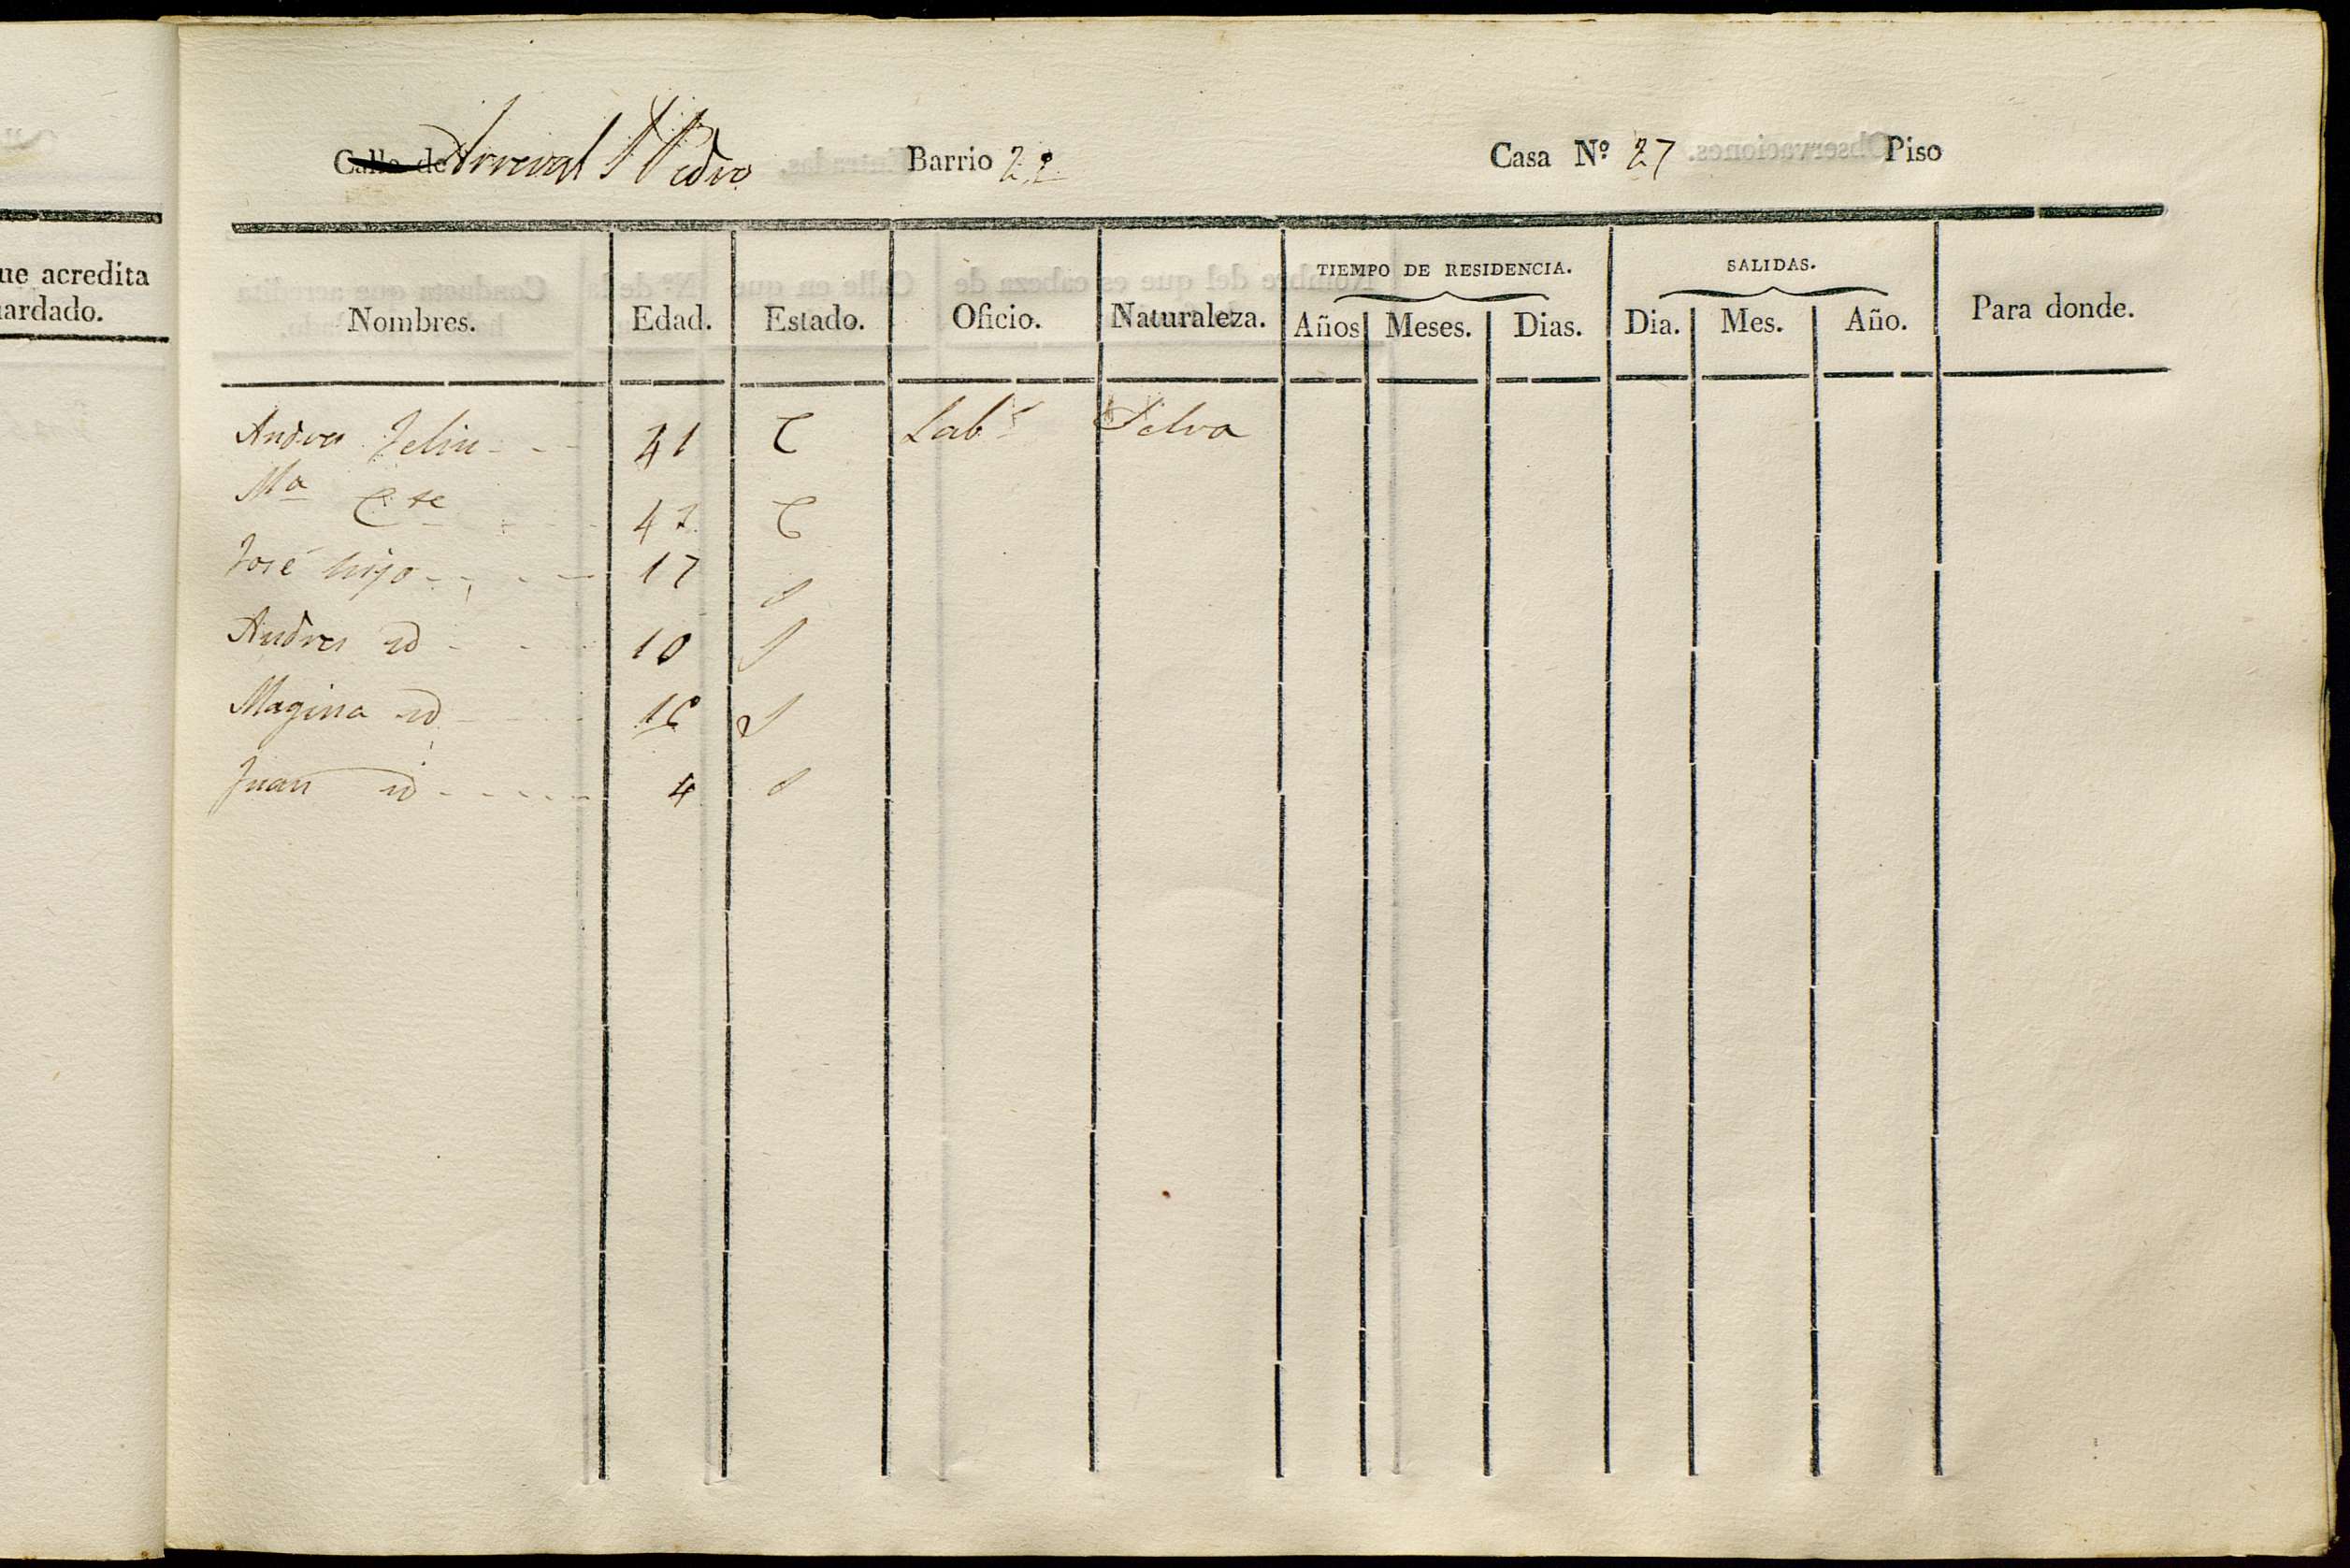 ue acredita
ardado.
Calle de Arreval S. Pedro Barrio 22 Casa Nº 27 Piso
TIEMPO DE RESIDENCIA. SALIDAS.
Nombres. Edad. Estado. Oficio. Naturaleza. Años Meses. Dias. Dia. Mes. Año. Para donde.
Andres Feliu 41 C Labr Selva
Ma Cte 47 C
José hijo 17 S
Andres id 10 S
Magina id 16 S
Juan id 4 S